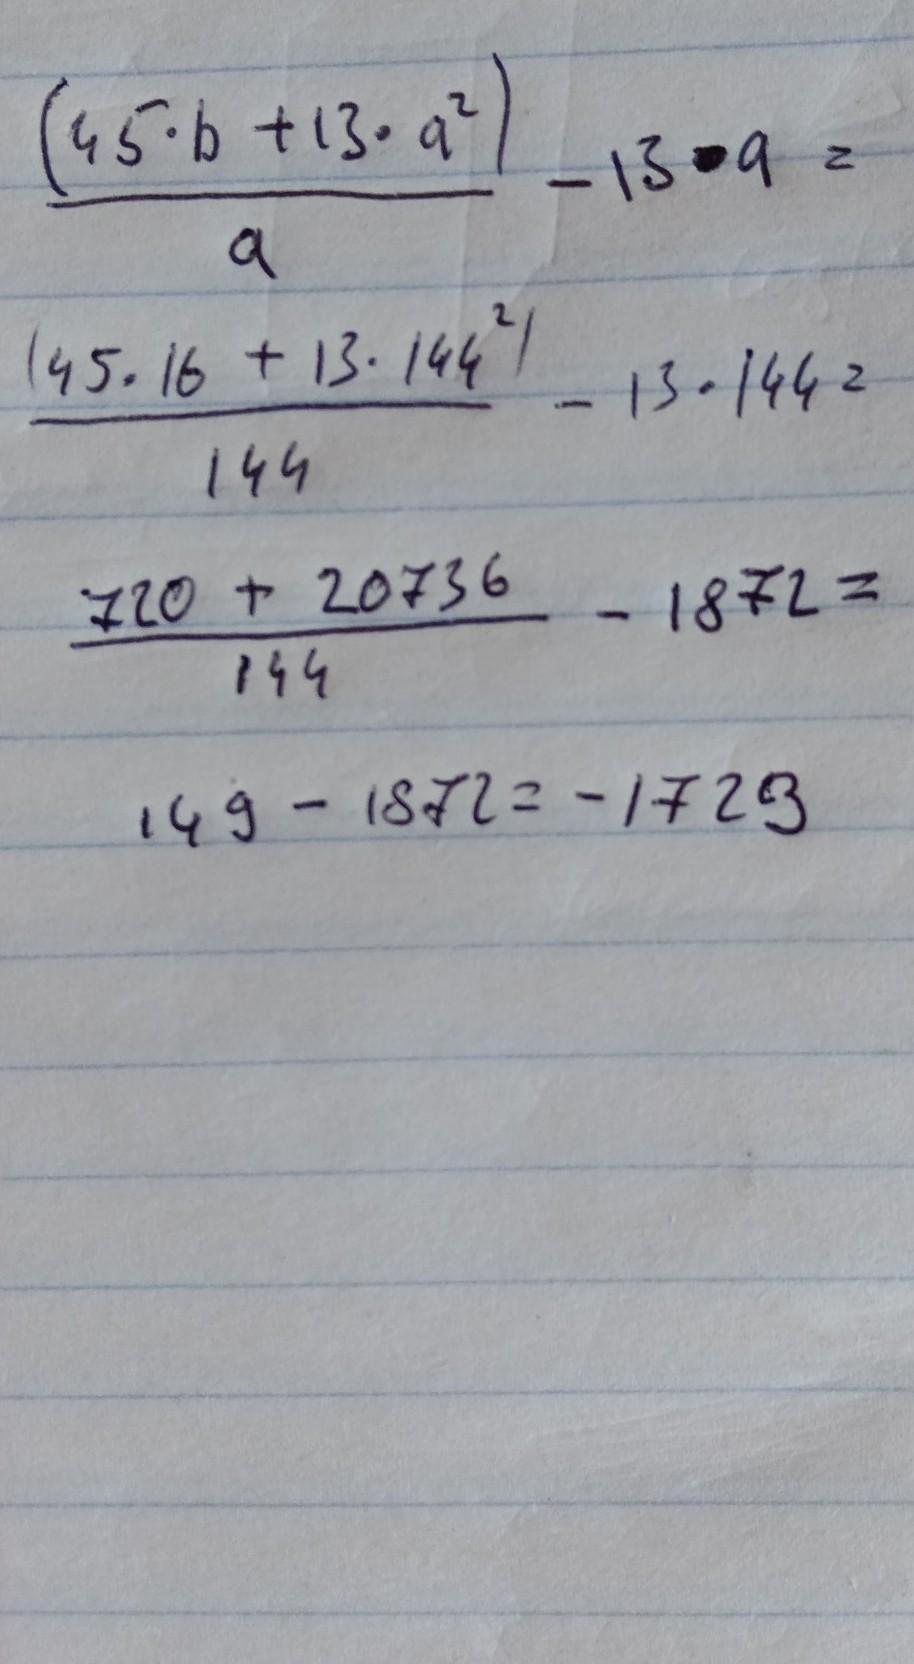 (45·b + 13·a²)/a - 13·a =
(45·16 + 13·144²)/144 - 13·144 =
720 + 20736/144 - 1872 =
149 - 1872 = -1729